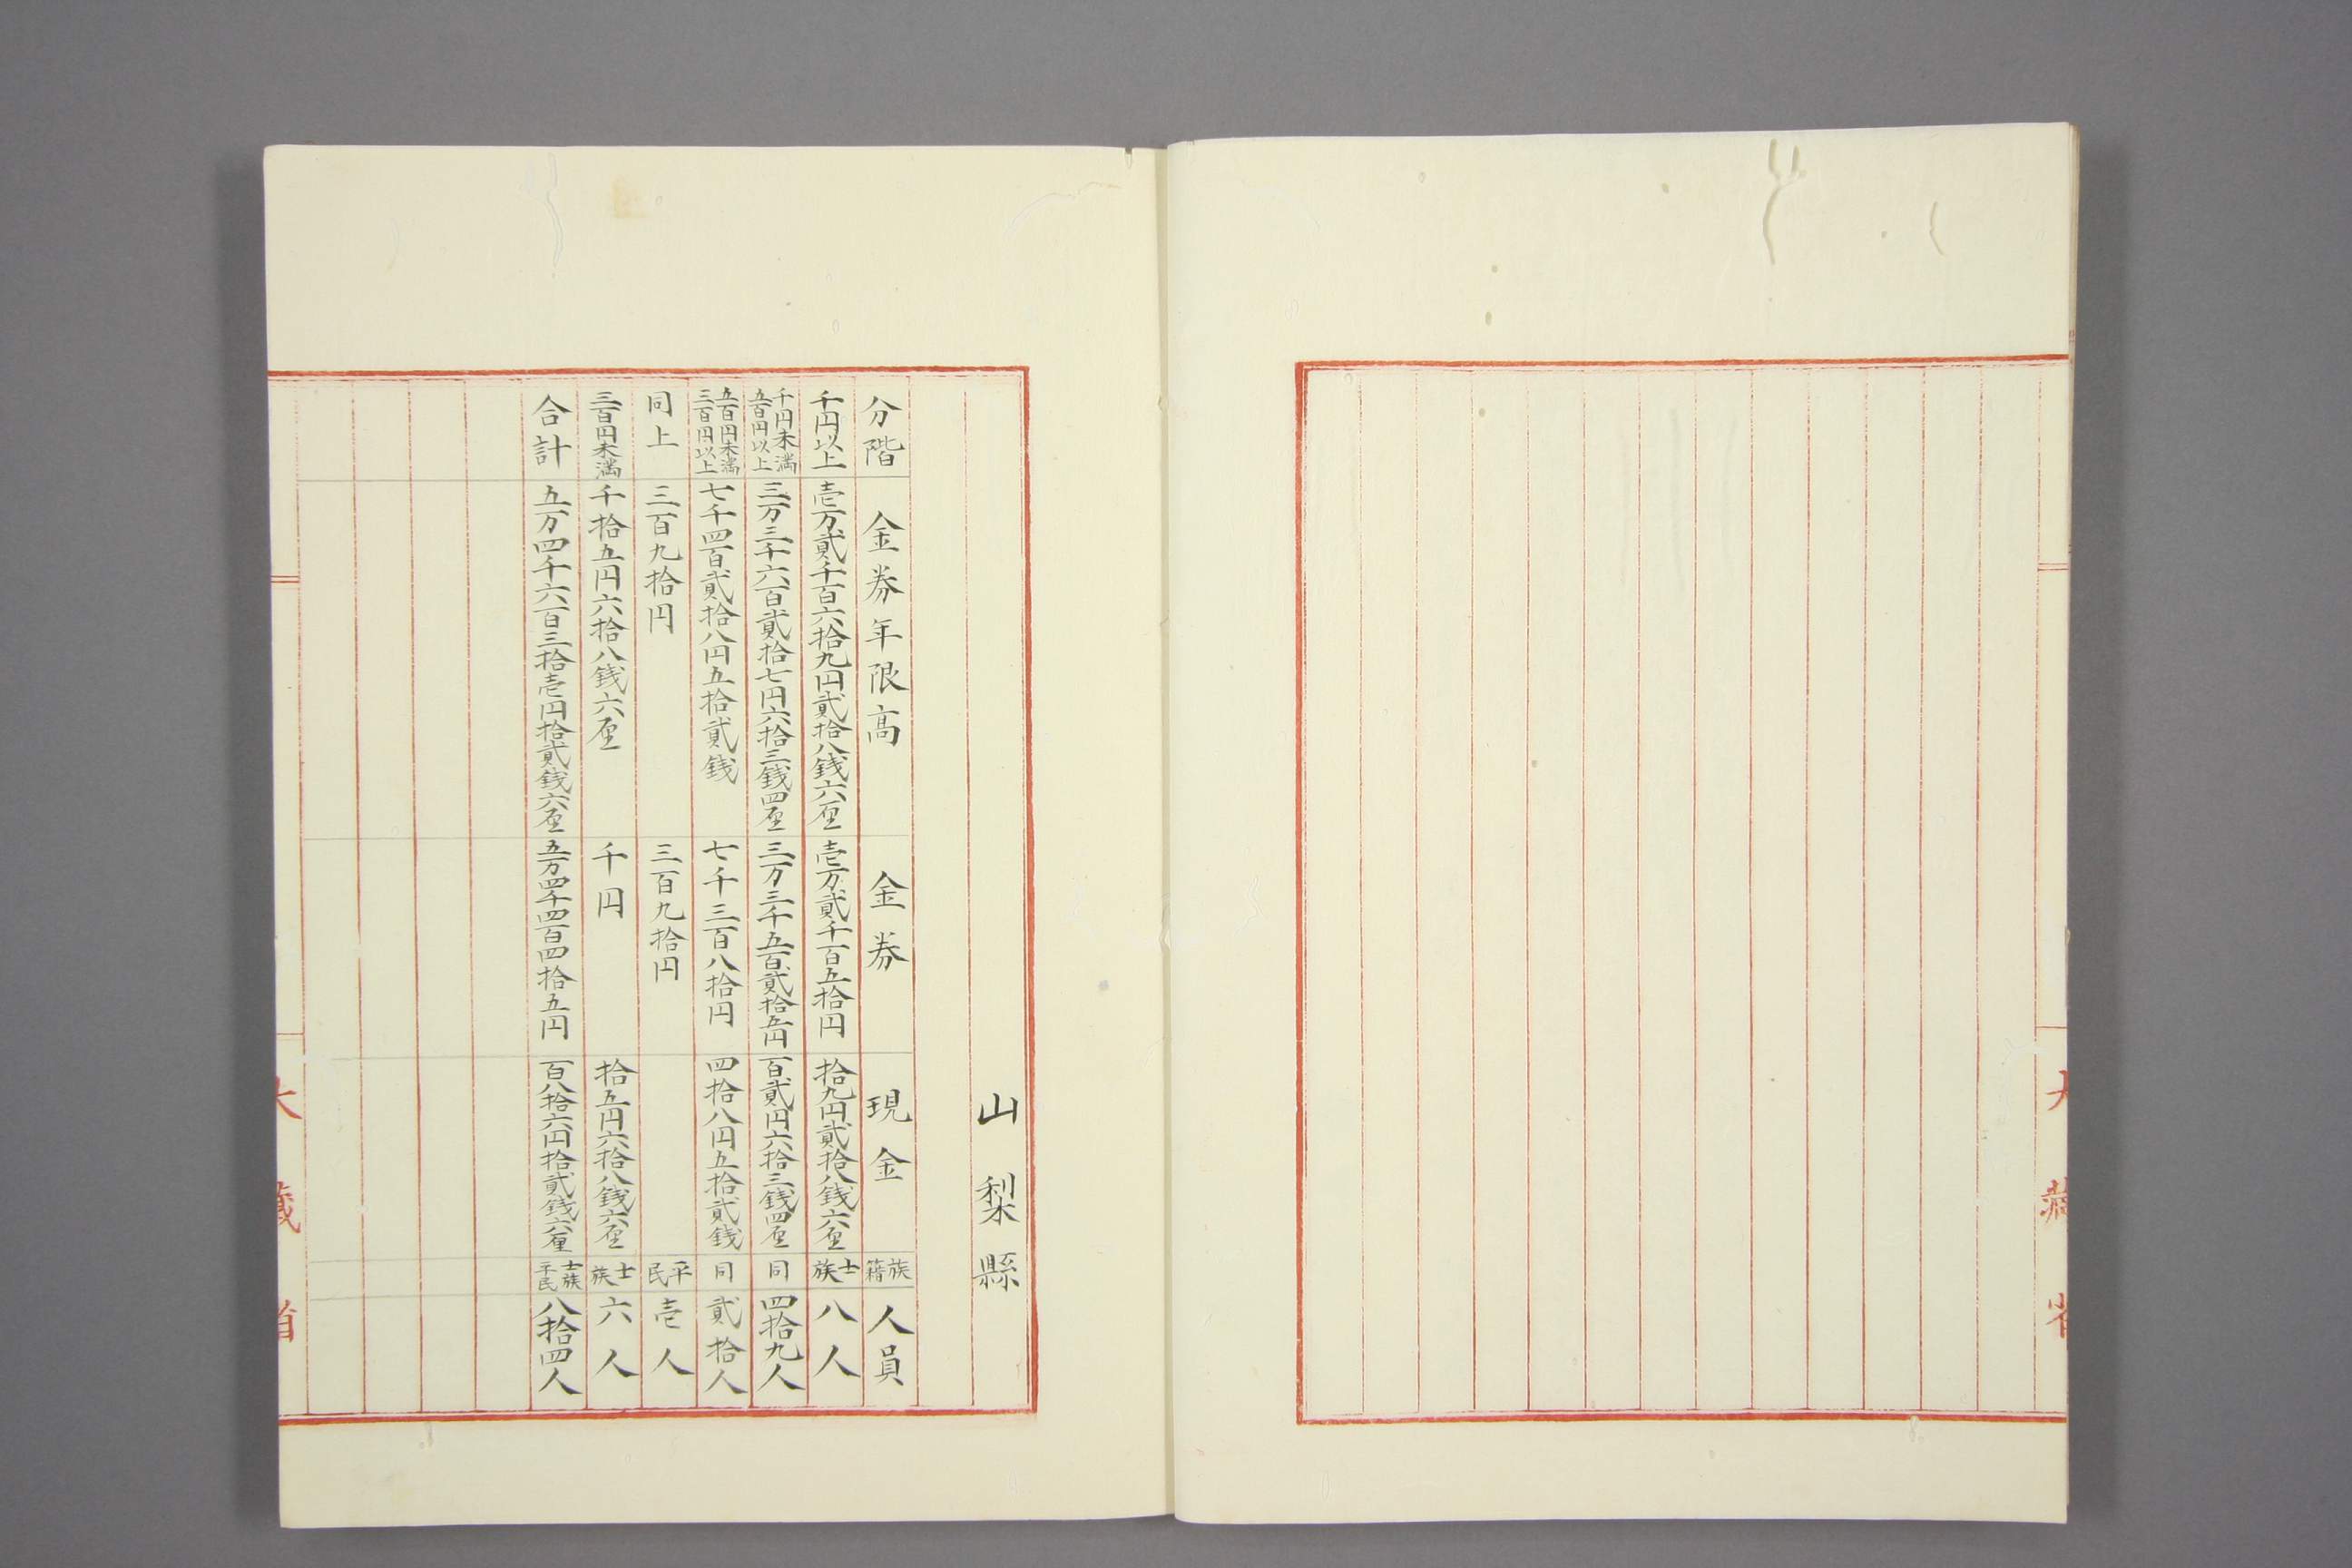 大藏省
山梨縣
分階 金券年限高 金券 現金 族籍 人員
千円以上 壱万貳千百六拾九円貳拾八銭六厘 壱万貳千百五拾円 拾九円貳拾八銭六厘 士族 八人
千円未満五百円以上 三万三千六百貳拾七円六拾三銭四厘 三万三千五百貳拾五円 百貳円六拾三銭四厘 同 四拾九人
五百円未満三百円以上 七千四百貳拾八円五拾貳銭 七千三百八拾円 四拾八円五拾貳銭 同 貳拾人
同上 三百九拾円 三百九拾円 平民 壱人
三百円未満 千拾五円六拾八銭六厘 千円 拾五円六拾八銭六厘 士族 六人
合計 五万四千六百三拾壱円拾貳銭六厘 五万四千四百四拾五円 百八拾六円拾貳銭六厘 士族平民 八拾四人
大藏省